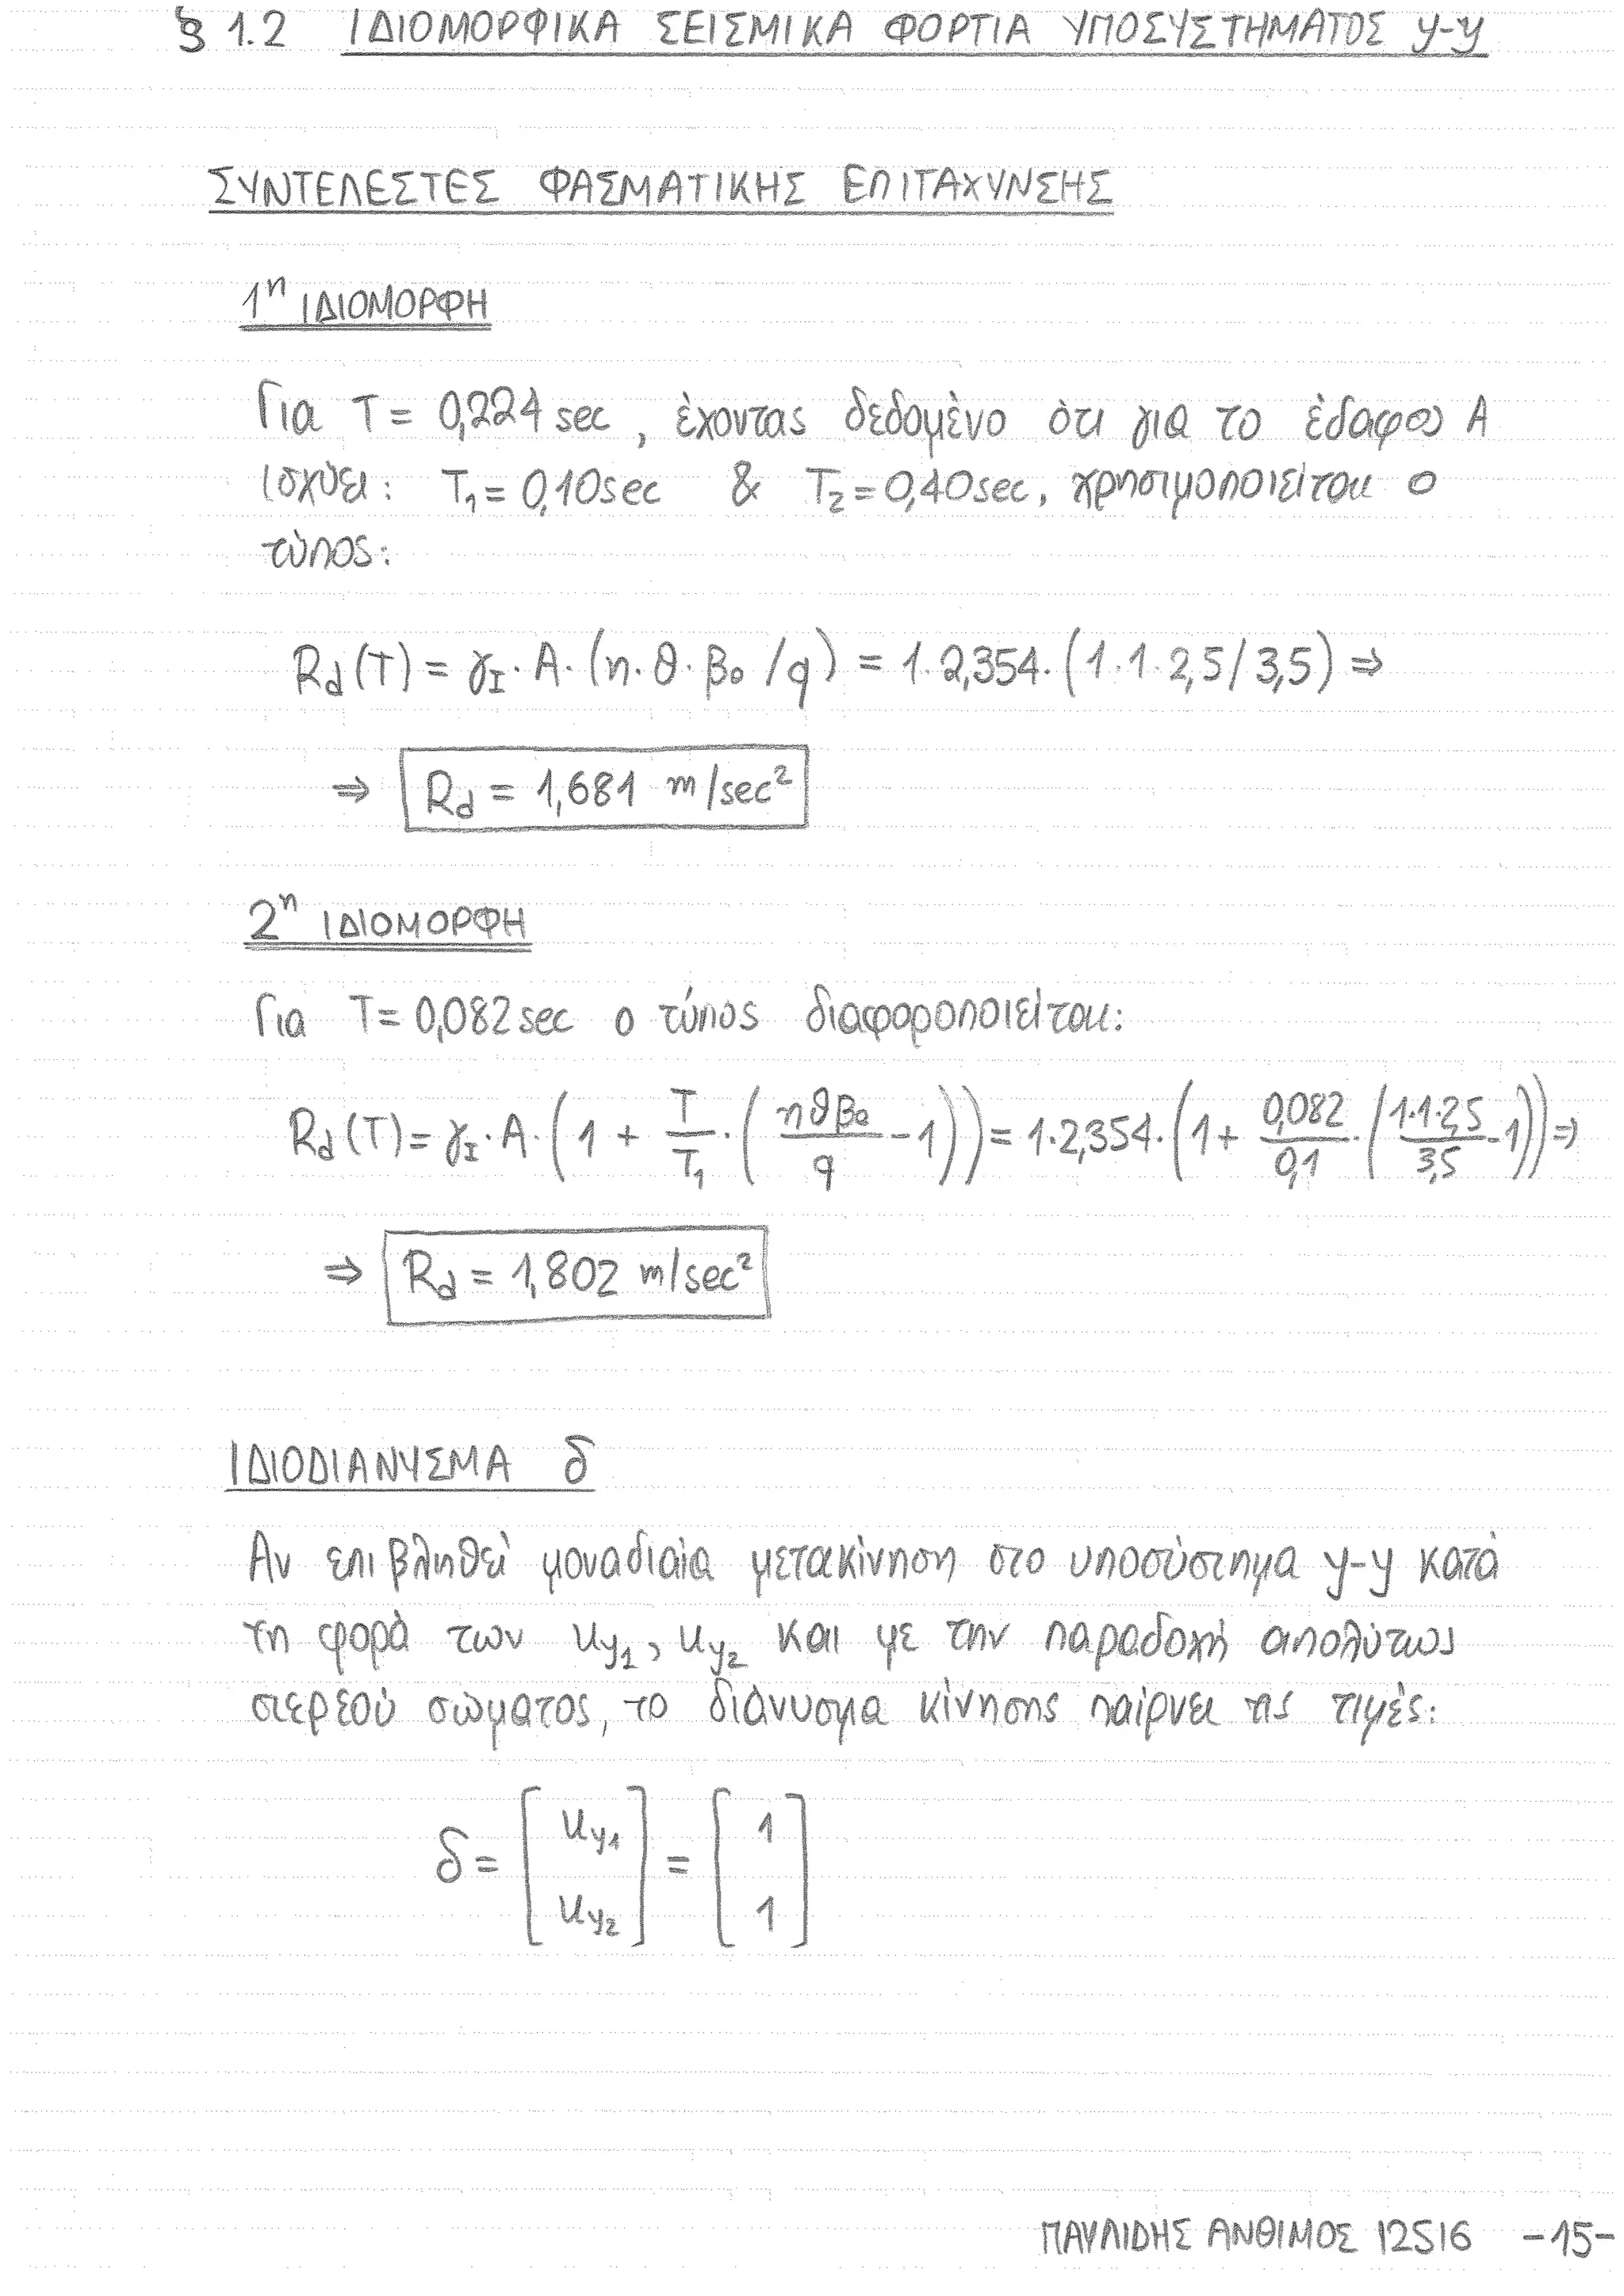 § 1.2 ΙΔΙΟΜΟΡΦΙΚΑ ΣΕΙΣΜΙΚΑ ΦΟΡΤΙΑ ΥΠΟΣΥΣΤΗΜΑΤΟΣ y-y
ΣΥΝΤΕΛΕΣΤΕΣ ΦΑΣΜΑΤΙΚΗΣ ΕΠΙΤΑΧΥΝΣΗΣ
1η ΙΔΙΟΜΟΡΦΗ
Για T = 0,224 sec, έχοντας δεδομένο ότι για το έδαφος Α
ισχύει: T₁ = 0,10sec & T₂ = 0,40sec, χρησιμοποιείται ο
τύπος:
Rd(T) = γI · A · (η · θ · β₀ / q) = 1 · 2,354 · (1 · 1 · 2,5 / 3,5) ⇒
⇒ Rd = 1,681 m/sec²
2η ΙΔΙΟΜΟΡΦΗ
Για T = 0,082 sec ο τύπος διαφοροποιείται:
Rd(T) = γI · A · (1 + T/T₁ · (ηθβ₀/q - 1)) = 1 · 2,354 · (1 + 0,082/0,1 · (1·1·2,5/3,5 - 1)) ⇒
⇒ Rd = 1,802 m/sec²
ΙΔΙΟΔΙΑΝΥΣΜΑ δ
Αν επιβληθεί μοναδιαία μετακίνηση στο υποσύστημα y-y κατά
τη φορά των uy1, uy2 και με την παραδοχή απολύτως
στερεού σώματος, το διάνυσμα κίνησης παίρνει τις τιμές:
δ = [uy1 uy2] = [1 1]
ΠΑΥΛΙΔΗΣ ΑΝΘΙΜΟΣ 12516 -15-